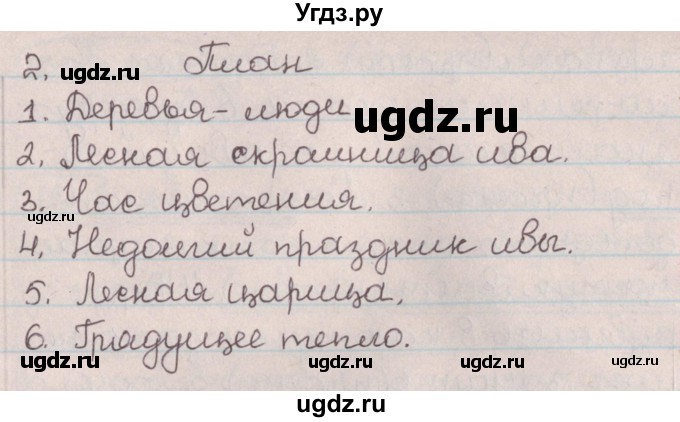 Угдз.ру
2. План
ugdz.ru
1. Деревья - люди
ugdz.ru
2, Лесная скромница ива.
3. Час цветения.
ugdz.ru
ugdz.ru
4, Недолгий праздник ивы.
5. Лесная царица,
6. Грядущее тепло.
ugdz.ru ugdz.ru ugdz.ru
ugdz.ru